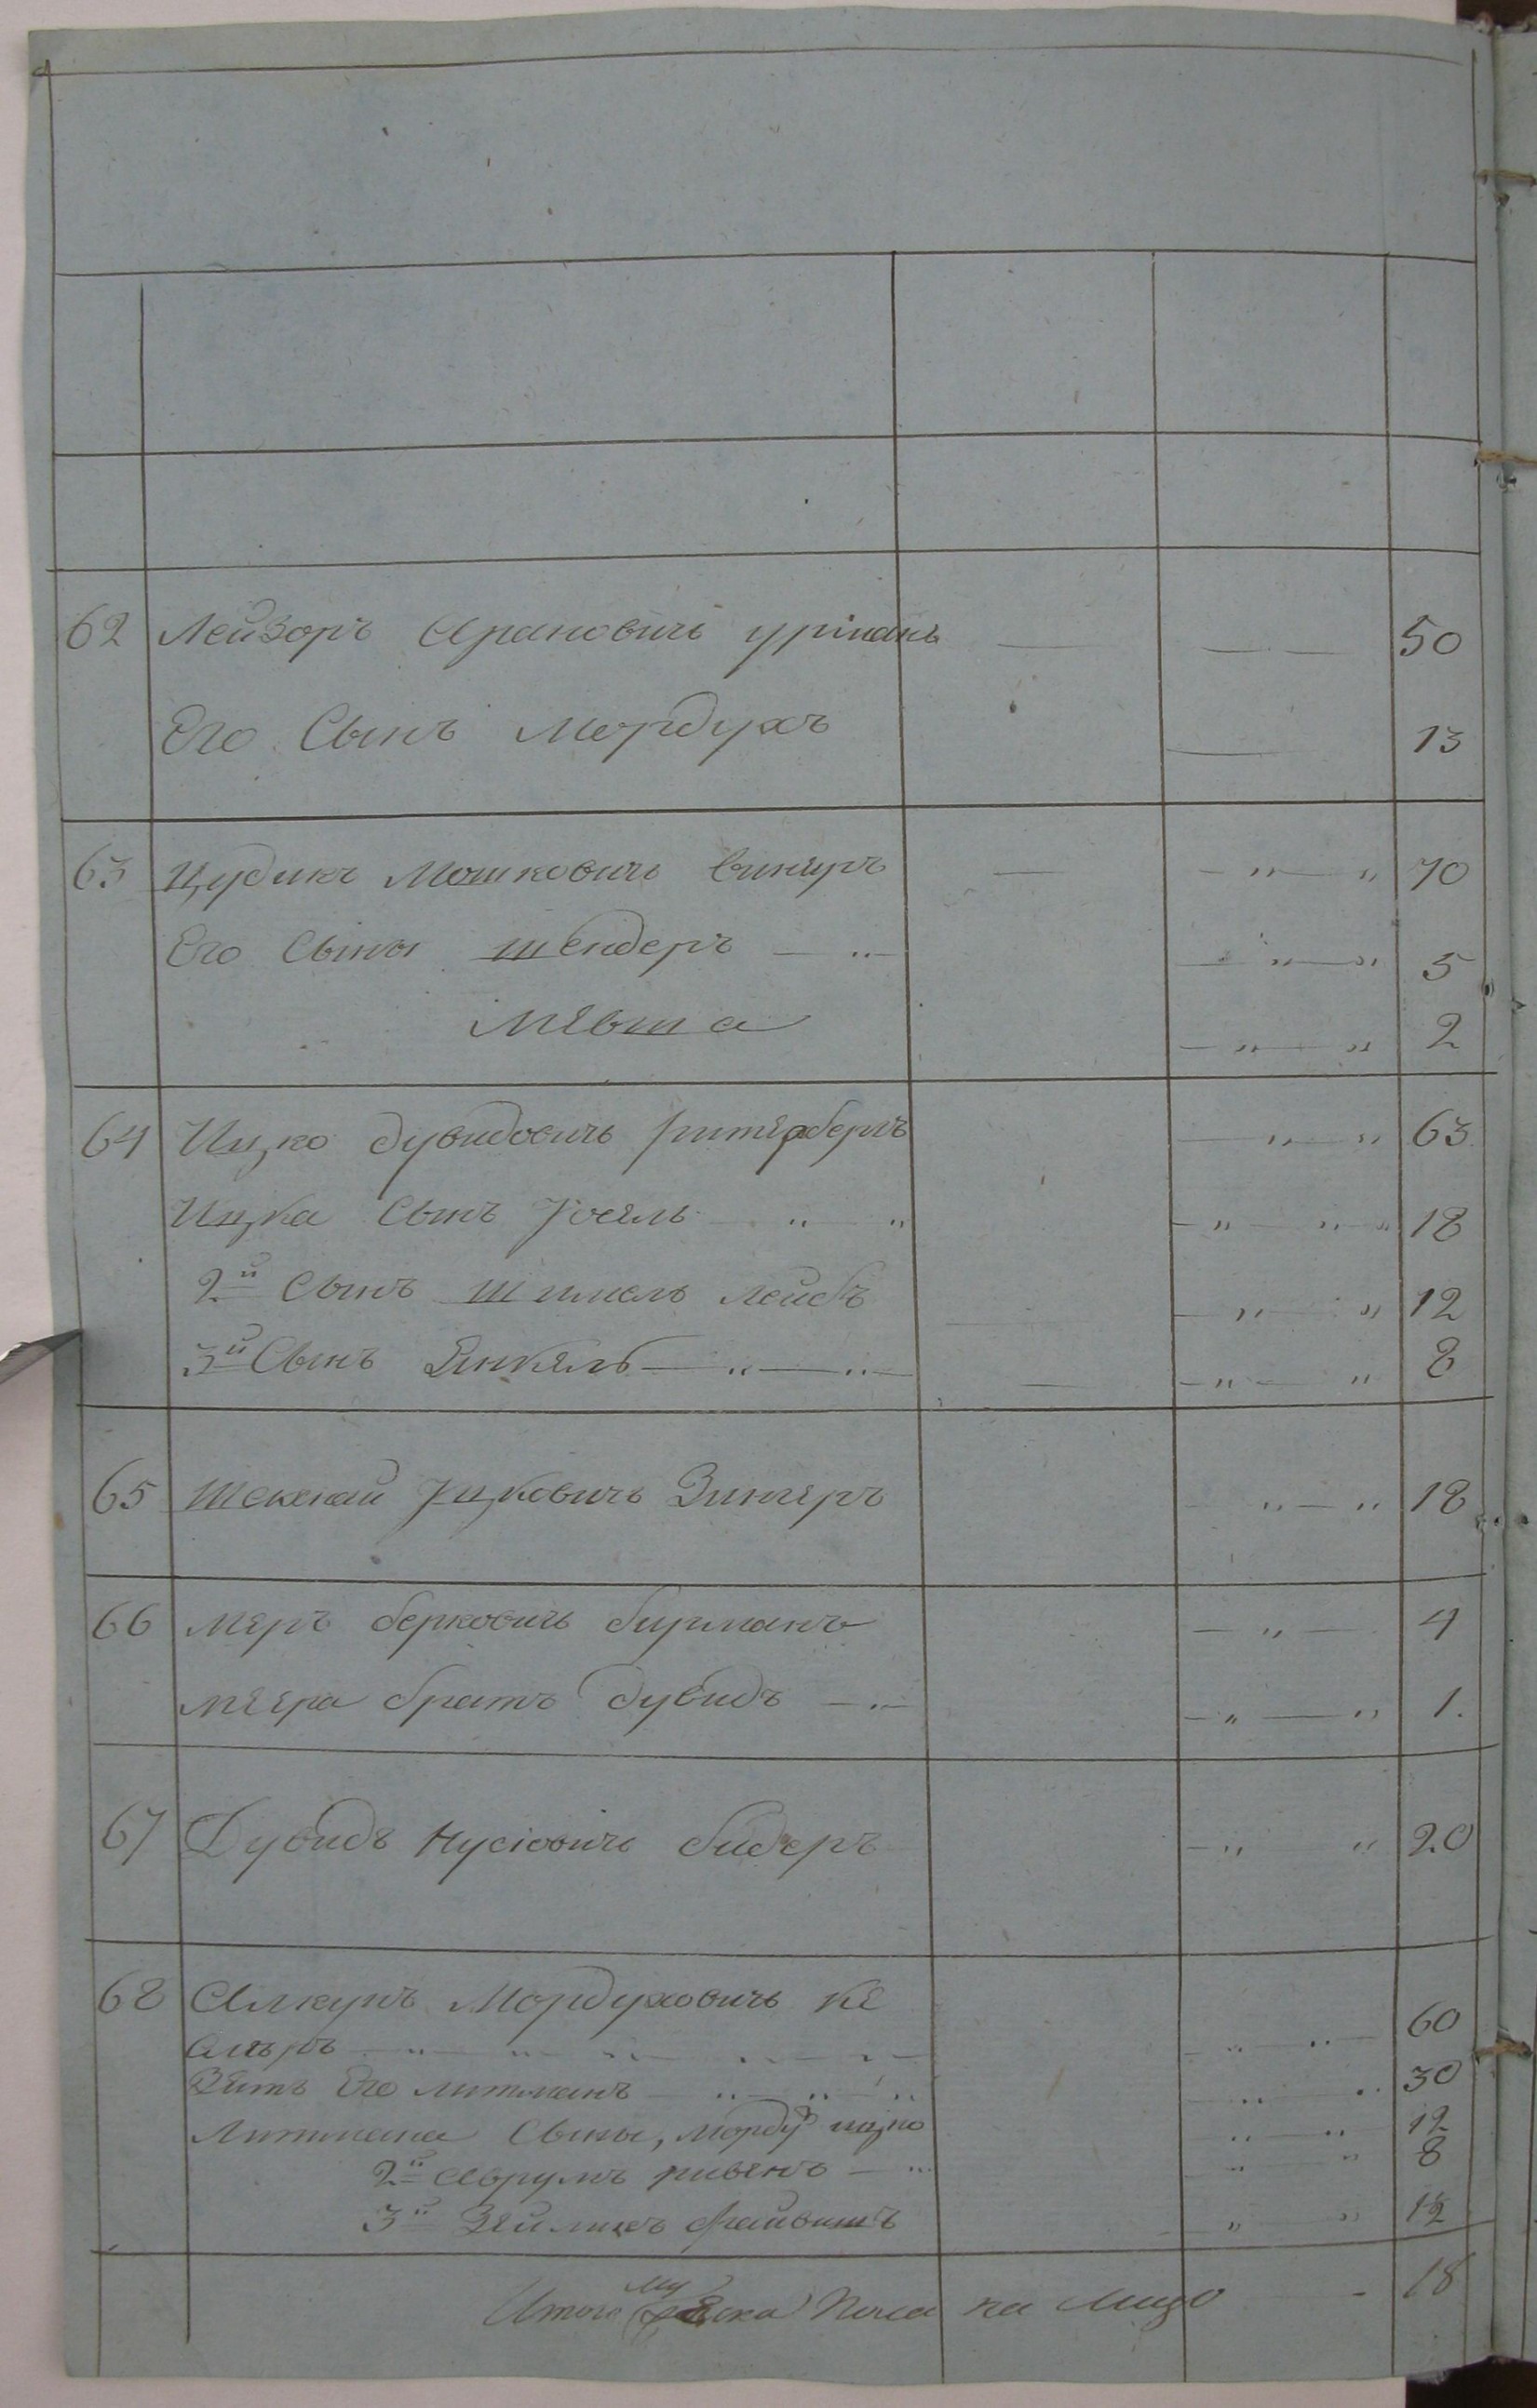 62 Лейзоръ Арановичъ уріманъ — — — 50
Его Сынъ Мордухъ — 13
63 Цудикъ Мошковичъ — „ — „ 70
Его Сыны Шендеръ — „ — — „ — „ 5
Мевша — „ — „ 2
64 Ицко дувидовичъ ритерберъ — „ — „ 63
Ицка Сынъ Іосель „ „ — „ — „ „ 18
2й Сынъ Шимель лейбъ — „ „ 12
3й Сынъ Янкель — „ — „ — — „ — „ 8
65 Іцковичъ Зингеръ „ — „ 18
66 Меръ берковичъ бирманъ — „ — 4
меера братъ дувидъ — „ — — „ — „ 1.
67 Дувидъ Нусіовичъ бидеръ — „ „ 20
68 Мордуховичъ ке
„ „ „ „ „ — „ „ — 60
Зять Его литманъ — „ — „ — „ „ „ 30
Литмана Сыны, Морду ицко „ „ 12
2й Аврумъ рывенъ — „ „ „ 8
3й Зейликъ Файвишъ „ „ 1½
Итого му Пола на лицо - 18